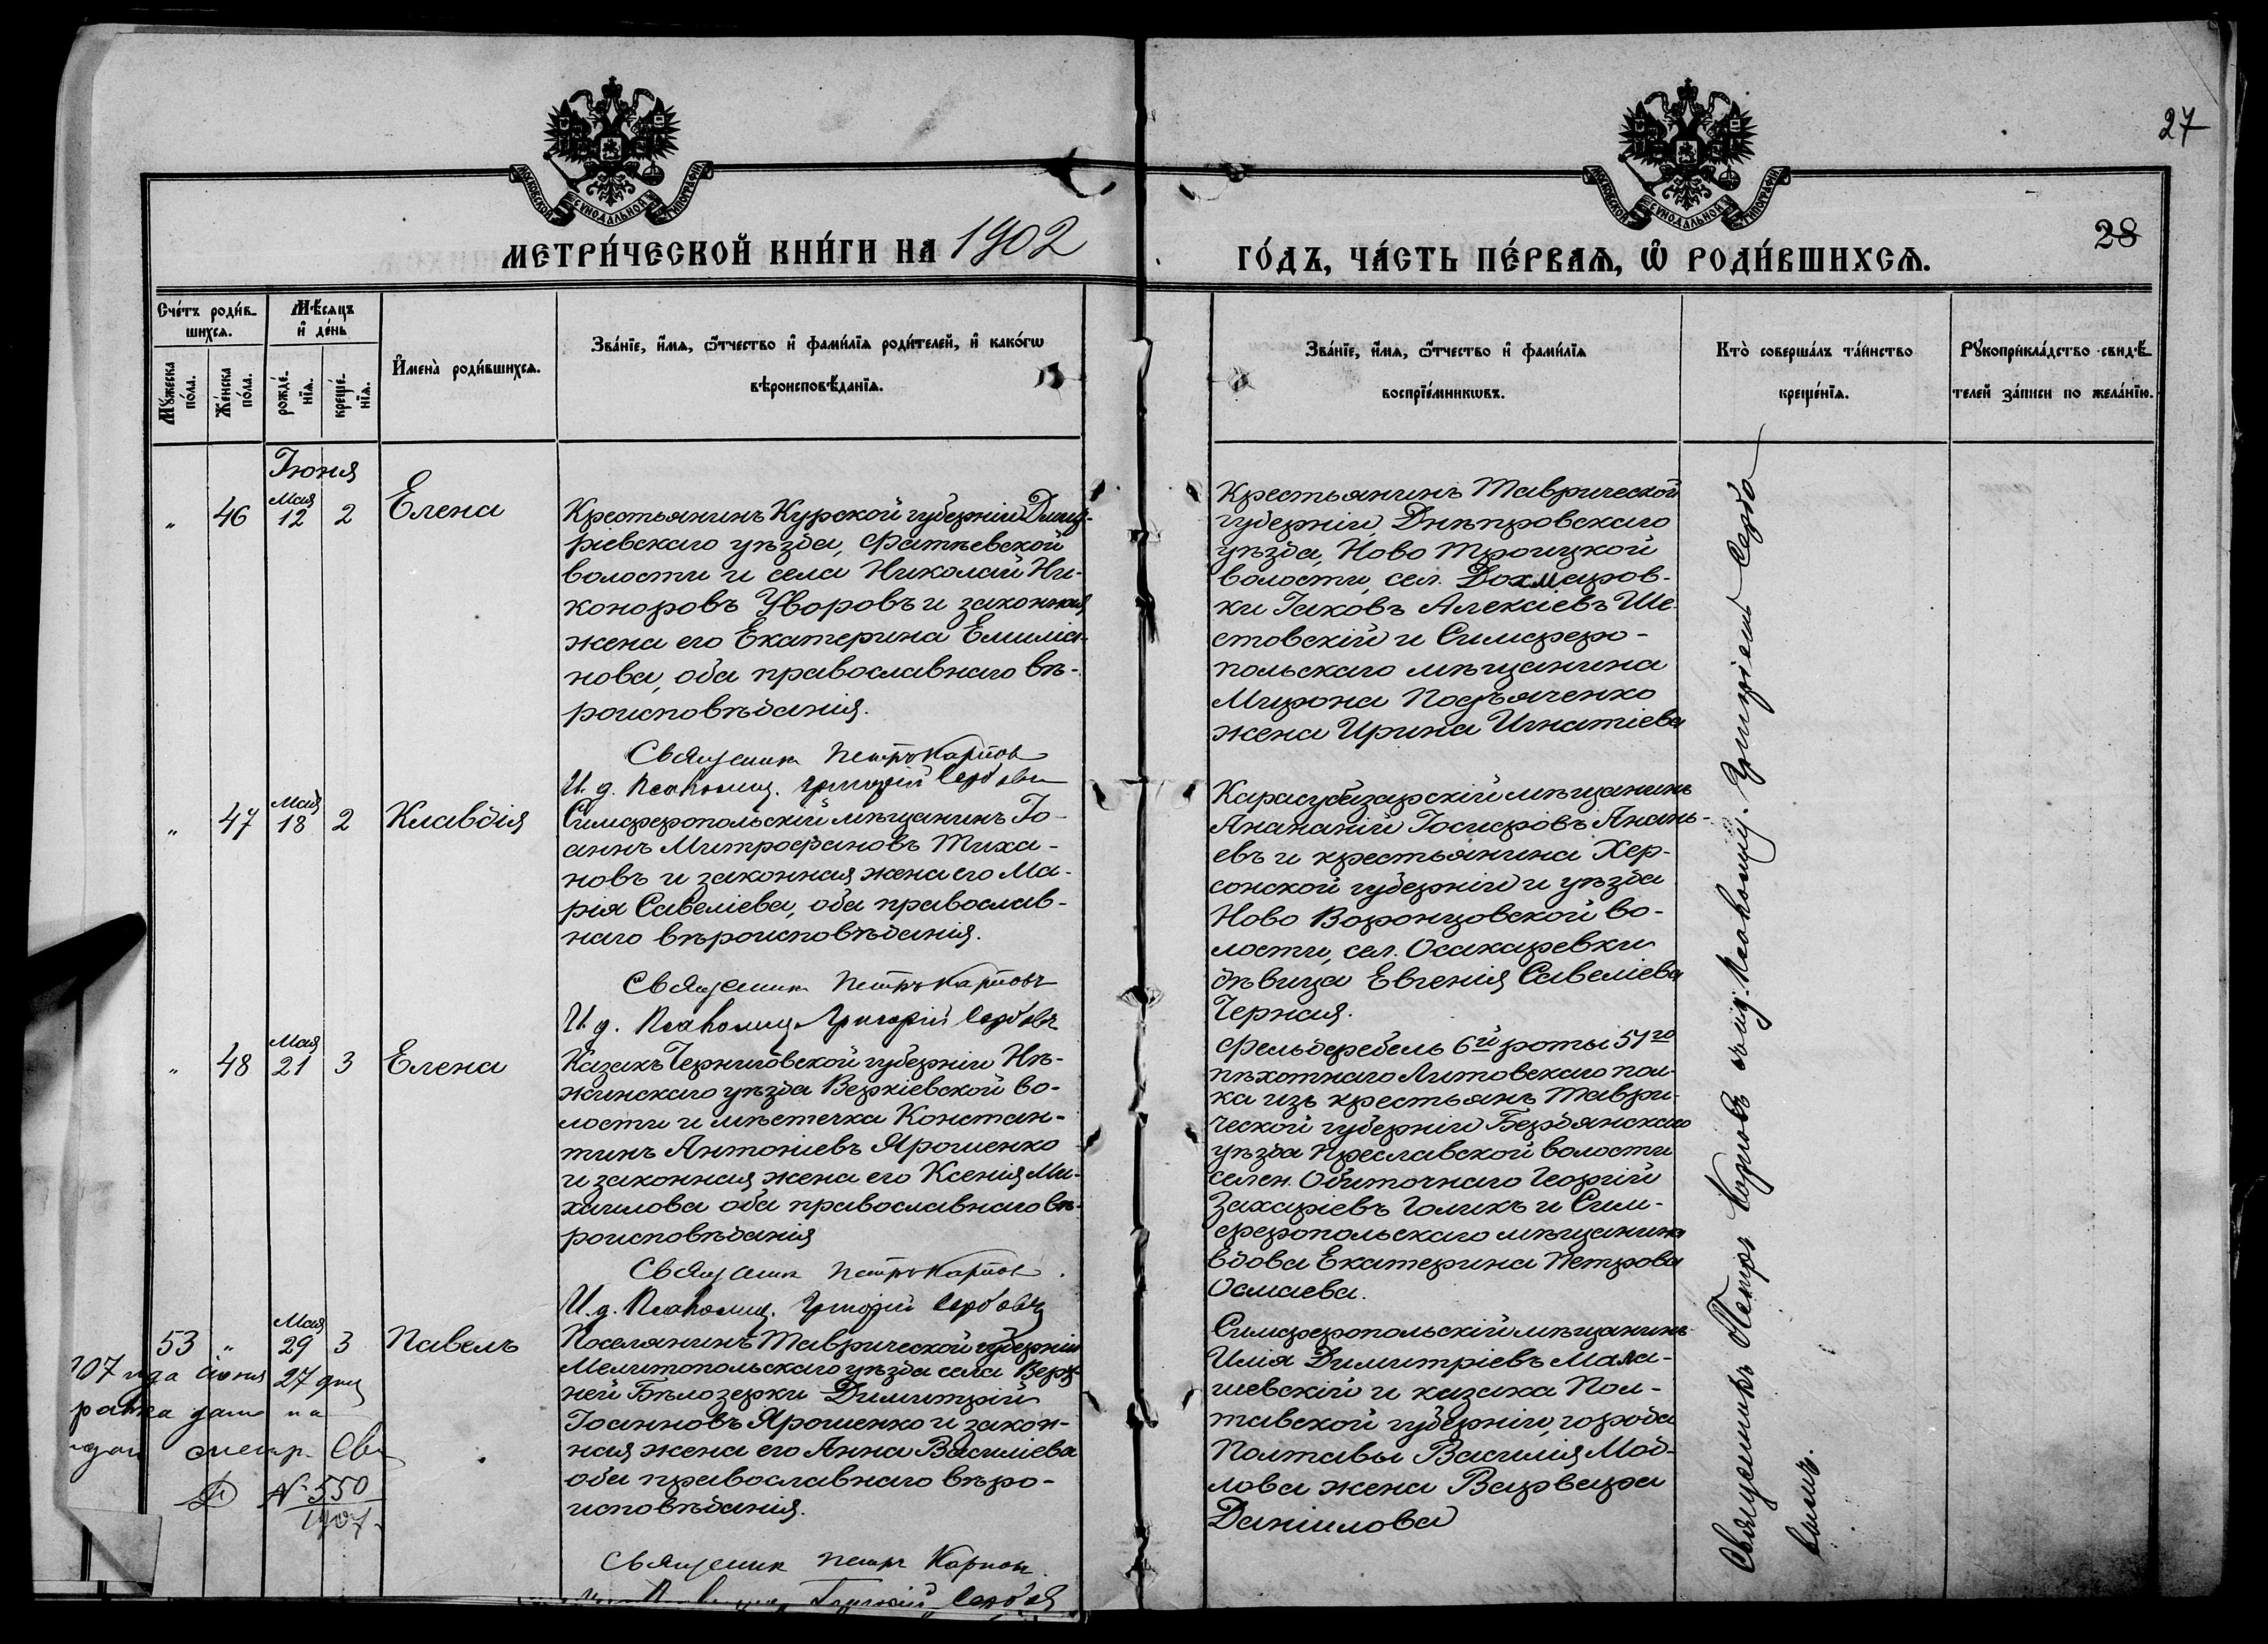 27
28
МОСКОВСКОЙ СѴНОДАЛЬНОЙ ТИПОГРАФІИ
МОСКОВСКОЙ СѴНОДАЛЬНОЙ ТИПОГРАФІИ
МЕТРИ́ЧЕСКОЙ КНИ́ГИ НА 1902
ГО́ДЪ, ЧА́СТЬ ПЕ́РВАѦ, Ѡ҆ РОДИ́ВШИХСѦ.
Сче́тъ роди́в-
шихсѧ.
Мꙋжеска по́ла.
Же́нска по́ла.
Мѣ́сѧцъ
и҆ де́нь
рожде́-
нїѧ.
креще́-
нїѧ.
И҆мена̀ роди́вшихсѧ.
Зва́нїе, и҆́мѧ, ѻ҆́тчество и҆ фами́лїѧ роди́телей, и҆ како́гѡ
вѣроисповѣ́данїѧ.
Зва́нїе, и҆́мѧ, ѻ҆́тчество и҆ фами́лїѧ
воспрїе́мникѡвъ.
Кто̀ соверша́лъ та́инство
креще́нїѧ.
Рꙋкоприкла́дство свидѣ́-
телей за́писи по жела́нїю.
Іюня
" 46 Мая 12 2 Елена
Крестьянинъ Курской губерніи Дмит-
ріевскаго уѣзда, Фатѣевской
волости и села Николай Ни-
коноровъ Уворовъ и законная
жена его Екатерина Емилiа-
нова, оба православнаго вѣ-
роисповѣданія.
Священникъ Петръ Карповъ
И. д. Псаломщ. Григорій Сербовъ
Крестьянинъ Таврической
губерніи, Днѣпровскаго
уѣзда, Ново Троицкой
волости, сел. Дохмаров-
ки Іаковъ Алексіевъ Ше-
стовскій и Симферо-
польскаго мѣщанина
Мирона Подъяченко
жена Ирина Игнатіева
" 47 Мая 18 2 Клавдія
Симферопольскій мѣщанинъ Іо-
аннъ Митрофановъ Тиха-
новъ и законная жена его Ма-
рія Савеліева, оба православ-
наго вѣроисповѣданія.
Священникъ Петръ Карповъ
И. д. Псаломщ. Григорій Сербовъ
Карасубазарскій мѣщанинъ
Ананій Іосифовъ Анань-
евъ и крестьянина Хер-
сонской губерніи и уѣзда
Ново Воронцовской во-
лости, сел. Осакаревки
дѣвица Евгенія Савеліева
Черная.
" 48 Мая 21 3 Елена
Казакъ Черниговской губерніи Нѣ-
жинскаго уѣзда Веркіевской во-
лости и мѣстечка Констан-
тинъ Антоніевъ Ярошенко
и законная жена его Ксенія Ми-
хаилова оба православнаго вѣ-
роисповѣданія
Священникъ Петръ Карповъ
И. д. Псаломщ. Григорій Сербовъ
Фельдфебель 6й роты 51го
пѣхотнаго Литовскаго пол-
ка изъ крестьянъ Таври-
ческой губерніи Бердянскаго
уѣзда Преславской волости
селен. Обиточнаго Георгій
Захаріевъ Голикъ и Сим-
феропольскаго мѣщанина
вдова Екатерина Петрова
Осмаева.
53 " Мая 29 3 Павелъ
Поселянинъ Таврической губерніи
Мелитопольскаго уѣзда села Верх-
ней Бѣлозерки Димитрій
Іоанновъ Ярошенко и закон-
ная жена его Анна Василіева
оба православнаго вѣро-
исповѣданія.
Священникъ Петръ Карповъ
Григорій Сербовъ
Симферопольскій мѣщанинъ
Илія Димитріевъ Мала-
шевскій и казака Пол-
тавской губерніи, города
Полтавы Василія Мод-
лова жена Варвара
Даніилова
107 года іюня 27 дня
дана на
метр. Сви
№ 550
1907
Священникъ Петръ Карповъ съ и.д. Псаломщ. Григоріемъ Сербо-
вымъ.